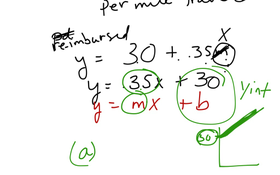 per mile
reimbursed x
y = 30 + .35
y = .35x + 30
y = mx + b y/int
30
(a)